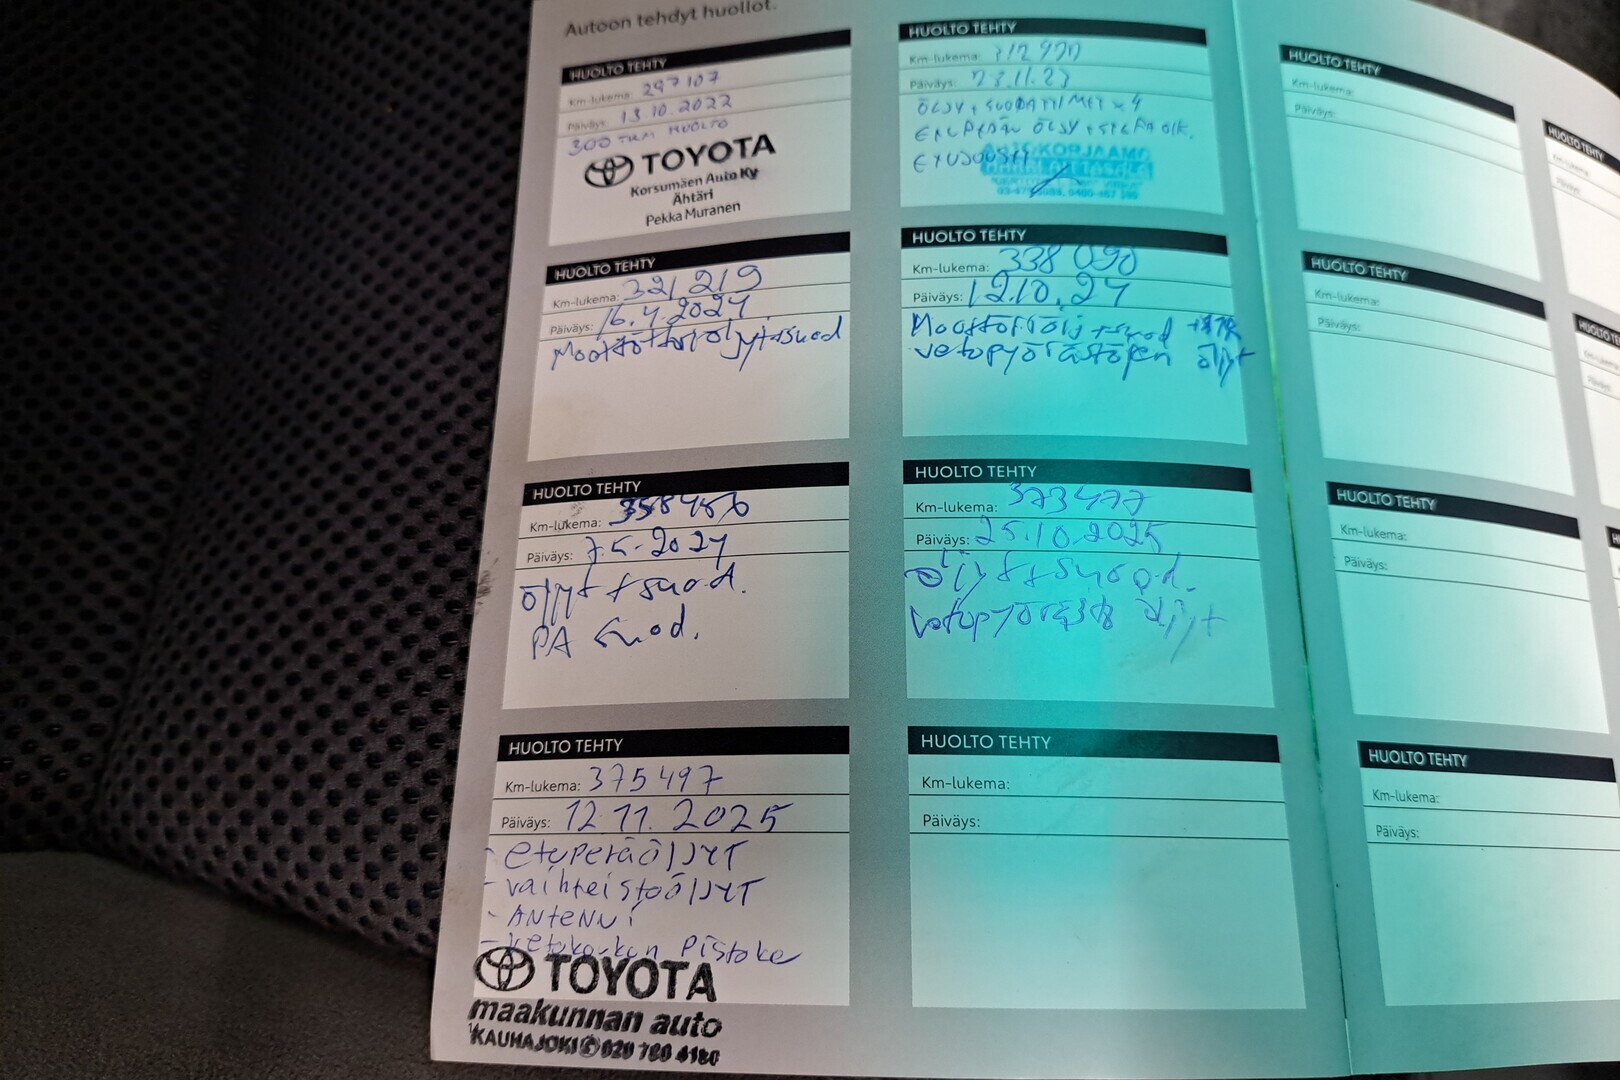 Autoon tehdyt huollot.
HUOLTO TEHTY
Km-lukema: 297107
Päiväys: 13.10.2022
300 TKM HUOLTO
TOYOTA
Korsumäen Auto Ky
Ähtäri
Pekka Muranen
HUOLTO TEHTY
Km-lukema: 312
Päiväys: 23.11.23
ÖLJY + SUODATTIMET x 4
ÖLJY +
AUTOKORJAAMO
HUOLTO TEHTY
Km-lukema: 321219
Päiväys: 16.4.2024
Moottoriöljyt+suod
HUOLTO TEHTY
Km-lukema: 338090
Päiväys: 12.10.24
Moottoriölj+suod
vetopyörästöjen öljyt
HUOLTO TEHTY
Km-lukema: 358456
Päiväys: 7.5.2024
öljyt+suod.
PA suod.
HUOLTO TEHTY
Km-lukema: 373477
Päiväys: 25.10.2025
öljyt+suod.
öljyt
HUOLTO TEHTY
Km-lukema: 375497
Päiväys: 12.11.2025
- etuperäöljyt
- vaihteistoöljyt
- Antenni
- vetokoukun pistoke
TOYOTA
maakunnan auto
KAUHAJOKI ✆ 020 780 4180
HUOLTO TEHTY
Km-lukema:
Päiväys:
HUOLTO TEHTY
Km-lukema:
Päiväys:
HUOLTO TEHTY
Km-lukema:
Päiväys:
HUOLTO TEHTY
Km-lukema:
Päiväys:
HUOLTO TEHTY
Km-lukema:
Päiväys:
HUOLTO TEHTY
Km-lukema:
Päiväys:
HUOLTO TE
Km-lukema:
Päiväys: